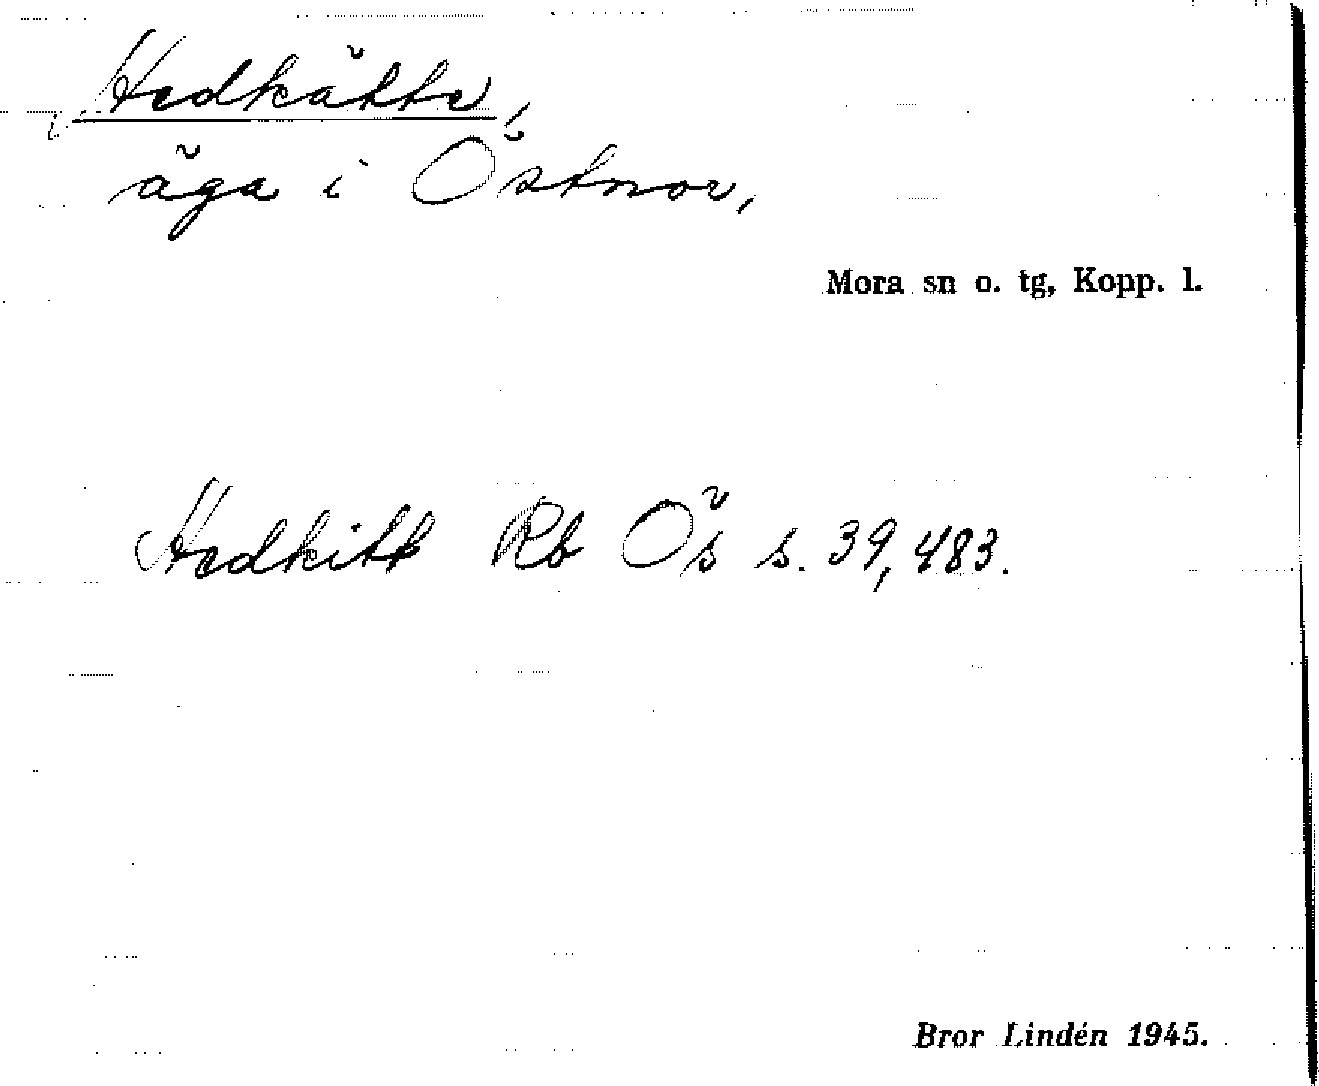 Hedkätte,
äga i Östnor,
Mora sn o. tg, Kopp. l.
Hedkitt Rb Ös s. 39, 483.
Bror Lindén 1945.